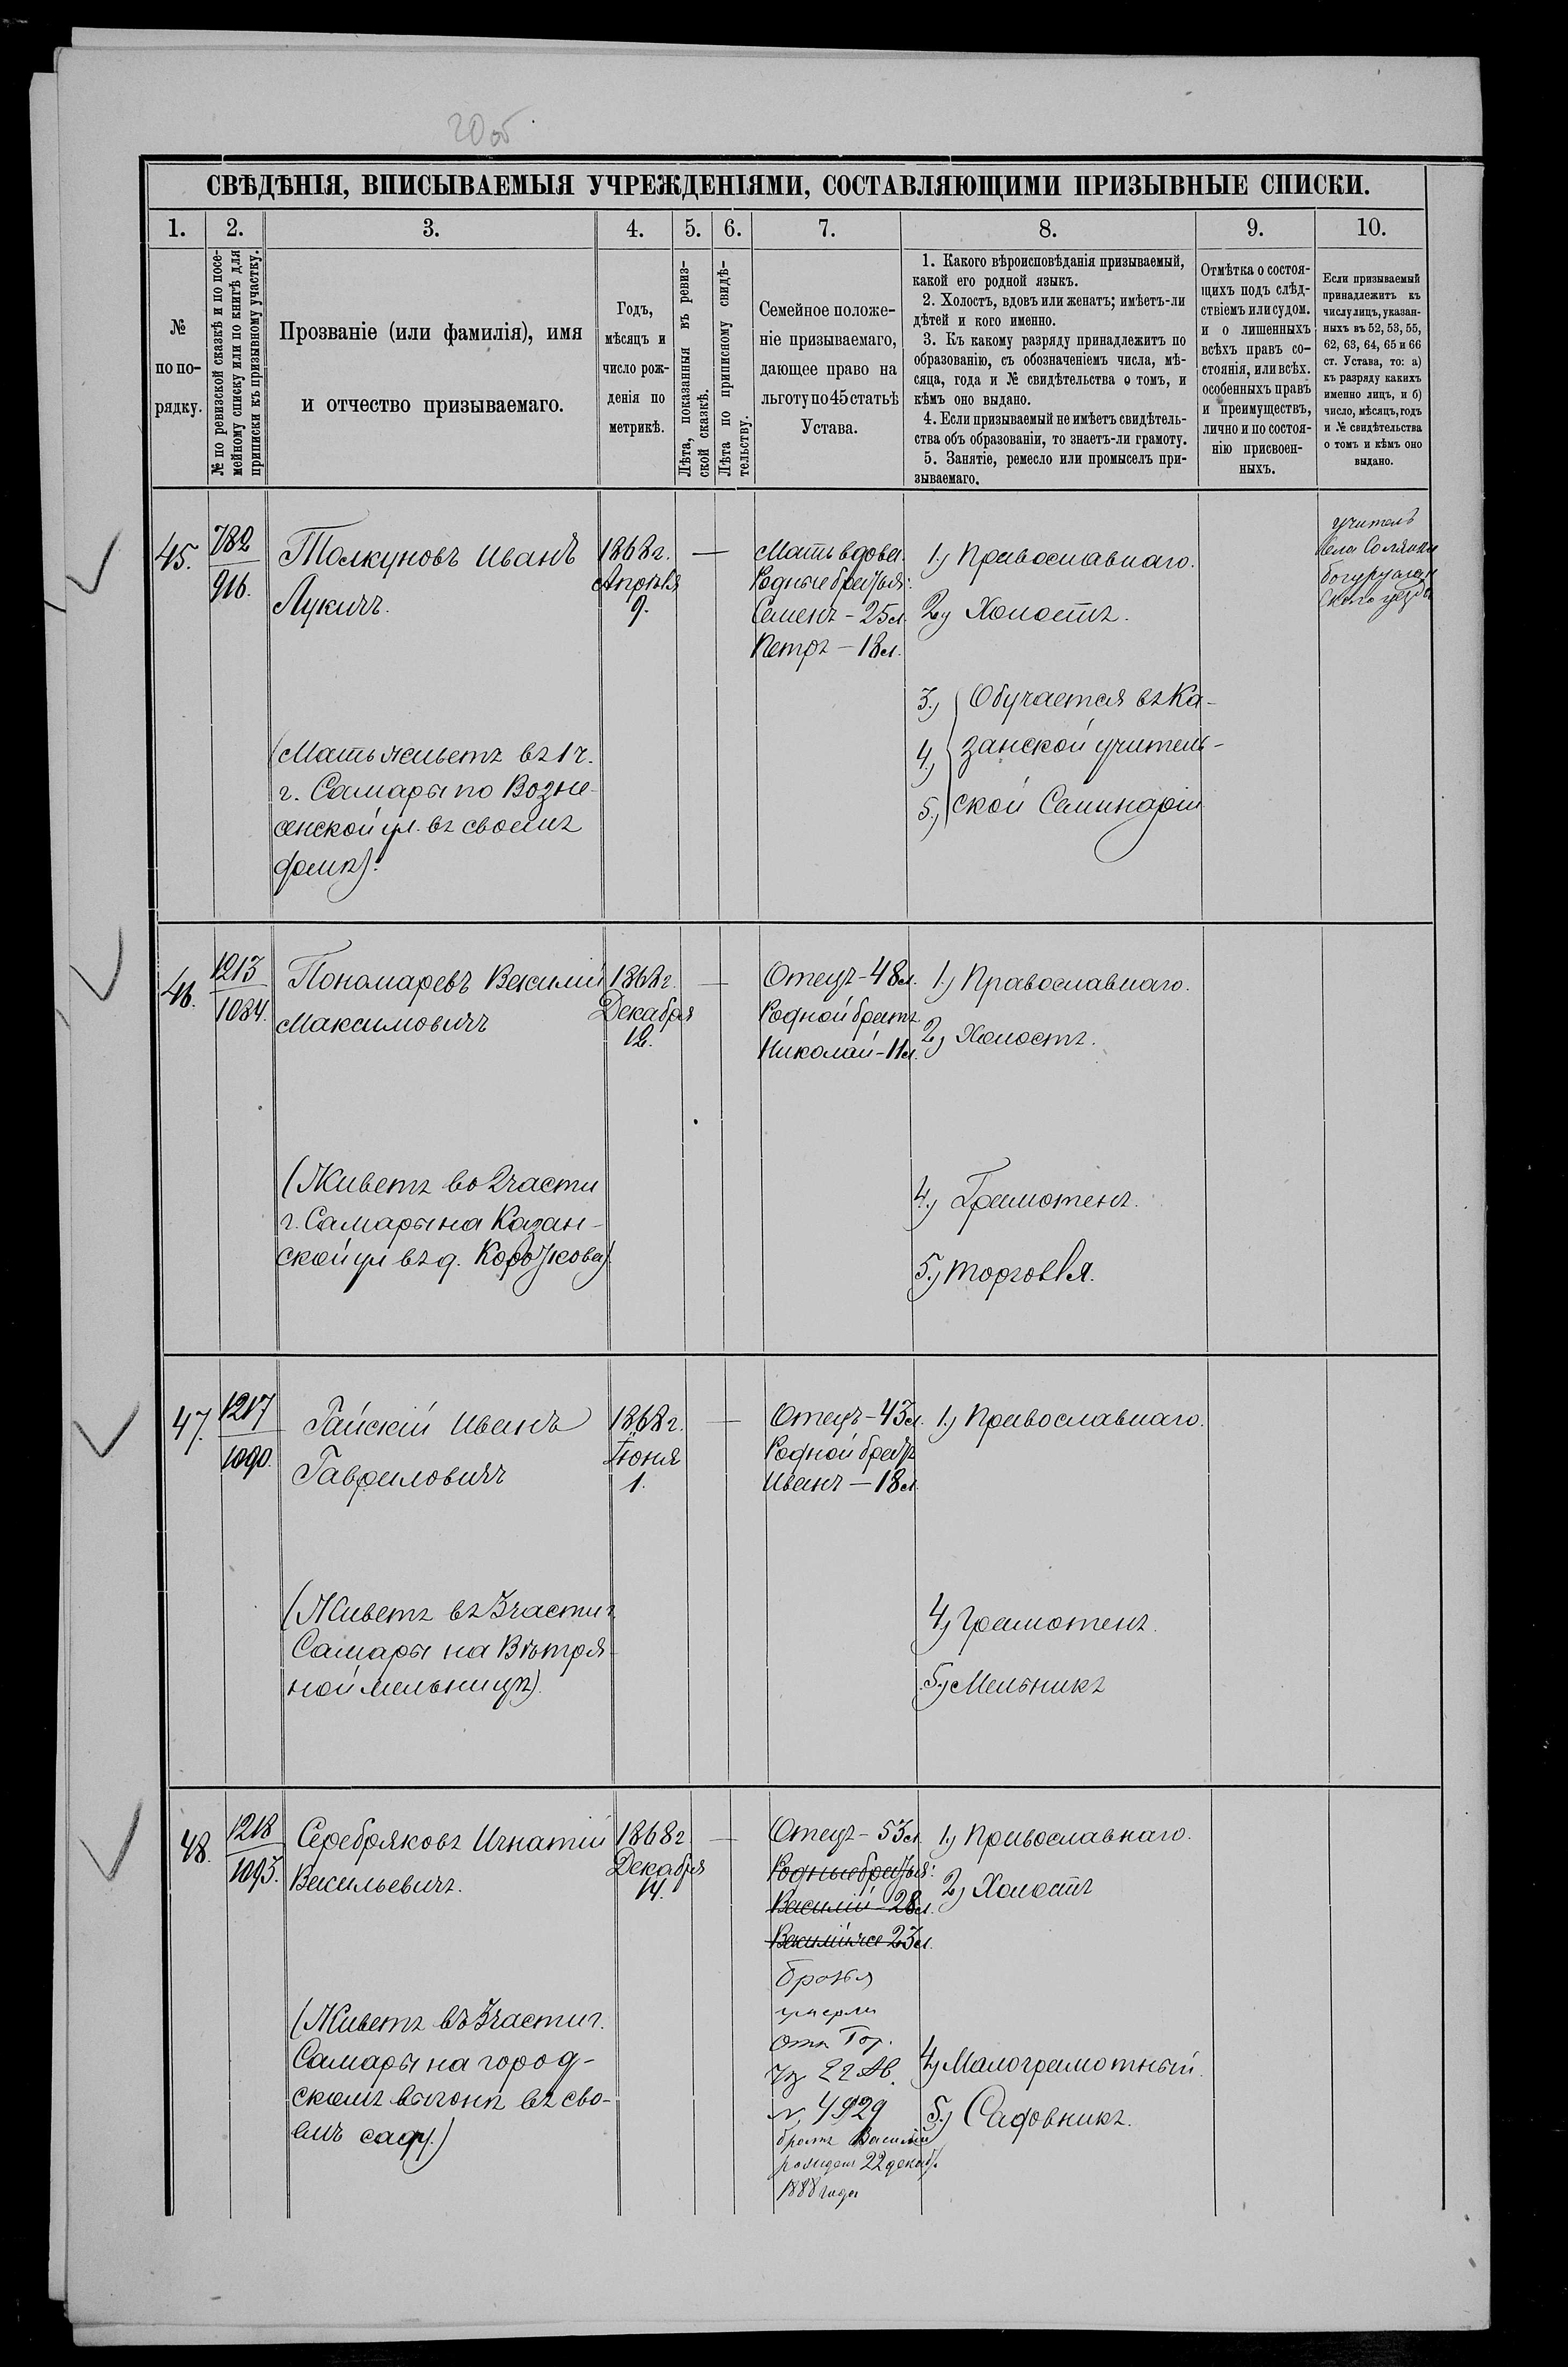 20об
СВѢДѢНІЯ, ВПИСЫВАЕМЫЯ УЧРЕЖДЕНІЯМИ, СОСТАВЛЯЮЩИМИ ПРИЗЫВНЫЕ СПИСКИ.
1.
2.
3.
4.
5.
6.
7.
8.
9.
10.
№
по по-
рядку.
№ по ревизской сказкѣ и по посе-
мейному списку или по книгѣ для
приписки къ призывному участку.
Прозваніе (или фамилія), имя
и отчество призываемаго.
Годъ,
мѣсяцъ и
число рож-
денія по
метрикѣ.
Лѣта, показанныя въ ревиз-
ской сказкѣ.
Лѣта по приписному свидѣ-
тельству.
Семейное положе-
ніе призываемаго,
дающее право на
льготу по 45 статьѣ
Устава.
1. Какого вѣроисповѣданія призываемый,
какой его родной языкъ.
2. Холостъ, вдовъ или женатъ; имѣетъ-ли
дѣтей и кого именно.
3. Къ какому разряду принадлежитъ по
образованію, съ обозначеніемъ числа, мѣ-
сяца, года и № свидѣтельства о томъ, и
кѣмъ оно выдано.
4. Если призываемый не имѣетъ свидѣтель-
ства объ образованіи, то знаетъ-ли грамоту.
5. Занятіе, ремесло или промыселъ при-
зываемаго.
Отмѣтка о состоя-
щихъ подъ слѣд-
ствіемъ или судом.
и о лишенныхъ
всѣхъ правъ со-
стоянія, или всѣх.
особенныхъ правъ
и преимуществъ,
лично и по состоя-
нію присвоен-
ныхъ.
Если призываемый
принадлежитъ къ
числу лицъ, указан-
ныхъ въ 52, 53, 55,
62, 63, 64, 65 и 66
ст. Устава, то: а)
къ разряду какихъ
именно лицъ, и б)
число, мѣсяцъ, годъ
и № свидѣтельства
о томъ и кѣмъ оно
выдано.
45.
782
916.
Толкуновъ Иванъ
Лукичъ.
(Мать живетъ въ 1 ч.
г. Самары по Возне-
сенской ул. въ своемъ
домѣ).
1868 г.
Апрѣля
9.
—
Мать вдова.
Родные братья:
Семенъ - 25 л.
Петръ - 18 л.
1.) Православнаго.
2.) Холостъ.
3.) Обучается въ Ка-
4.) занской учитель-
5.) ской Семинаріи
учитель
села Солянки
Бугурусланскаго уѣзда
46.
1213
1084.
Пономаревъ Василій
Максимовичъ
(Живетъ во 2 части
г. Самары на Казан-
ской ул въ д. Короткова).
1868 г.
Декабря
12.
—
Отецъ - 48 л.
Родной братъ
Николай - 11 л.
1.) Православнаго.
2.) Холостъ.
4.) Грамотенъ.
5.) Торговля.
47.
1217
1090.
Райскій Иванъ
Гавриловичъ
(Живетъ въ 3 части г.
Самары на Вѣтря-
ной мельницѣ).
1868 г.
Іюня
1.
—
Отецъ - 43 л.
Родной братъ
Иванъ - 18 л.
1.) Православнаго.
4.) Грамотенъ.
5.) Мельникъ
48.
1218
1093.
Серебряковъ Игнатій
Васильевичъ.
(Живетъ въ 3 части г.
Самары на город-
скомъ выгонѣ въ сво-
емъ саду.)
1868 г
Декабря
14.
—
Отецъ - 53 л.
Родные братья:
Василій - 28 л.
Василій же 23 л.
Братья
умерли
№ 4929
братъ Василій
22 декаб.
1888 года
1.) Православнаго.
2.) Холостъ
4.) Малограмотный.
5.) Садовникъ.